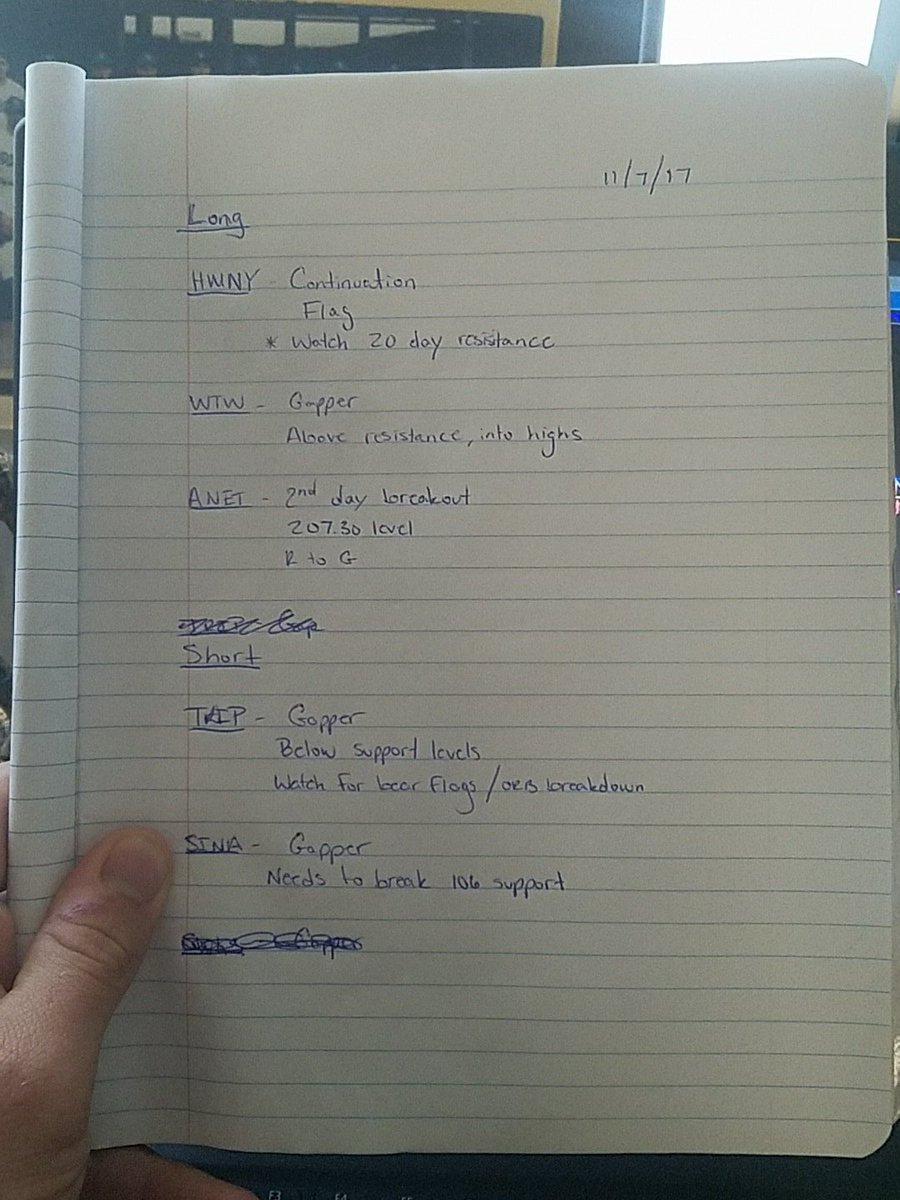 11/7/17
Long
HMNY - Continuation
Flag
* Watch 20 day resistance
WTW - Gapper
Above resistance, into highs
ANET - 2nd day breakout
207.30 level
R to G
Short
TRIP - Gapper
Below support levels
Watch for bear flags / ORB breakdown
SINA - Gapper
Needs to break 106 support
F3